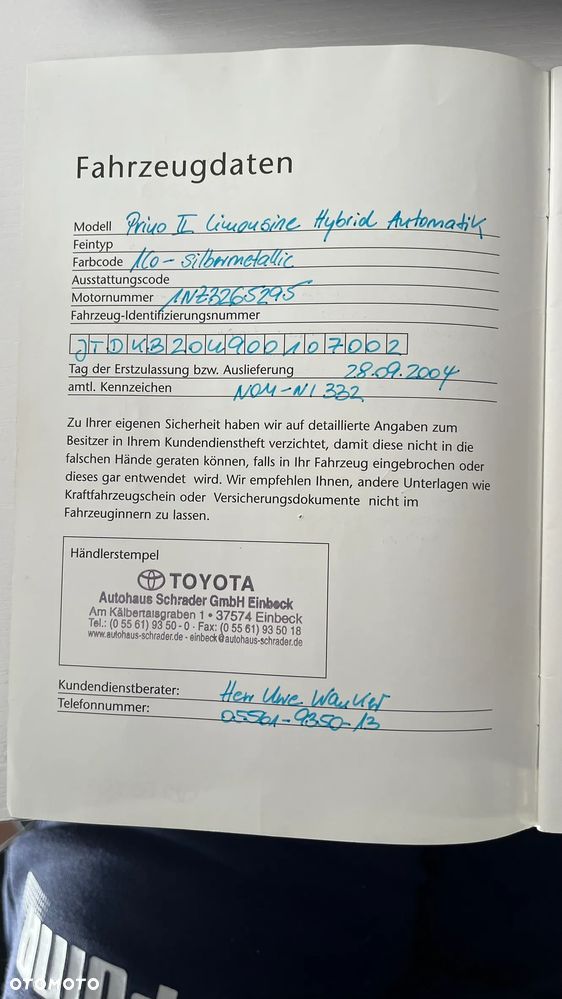 Fahrzeugdaten
Modell Prius II Limousine Hybrid Automatik
Feintyp
Farbcode 1C0 - silbermetallic
Ausstattungscode
Motornummer 1NZ3265295
Fahrzeug-Identifizierungsnummer
JTDKB20U900107002
Tag der Erstzulassung bzw. Auslieferung 28.09.2004
amtl. Kennzeichen NOM-NI 332
Zu Ihrer eigenen Sicherheit haben wir auf detaillierte Angaben zum
Besitzer in Ihrem Kundendienstheft verzichtet, damit diese nicht in die
falschen Hände geraten können, falls in Ihr Fahrzeug eingebrochen oder
dieses gar entwendet wird. Wir empfehlen Ihnen, andere Unterlagen wie
Kraftfahrzeugschein oder Versicherungsdokumente nicht im
Fahrzeuginnern zu lassen.
Händlerstempel
TOYOTA
Autohaus Schrader GmbH Einbeck
Am Kälbertalsgraben 1 • 37574 Einbeck
Tel.: (0 55 61) 93 50 - 0 · Fax: (0 55 61) 93 50 18
www.autohaus-schrader.de - einbeck@autohaus-schrader.de
Kundendienstberater: Herr Uwe
Telefonnummer: 05561-9350-13
OTOMOTO